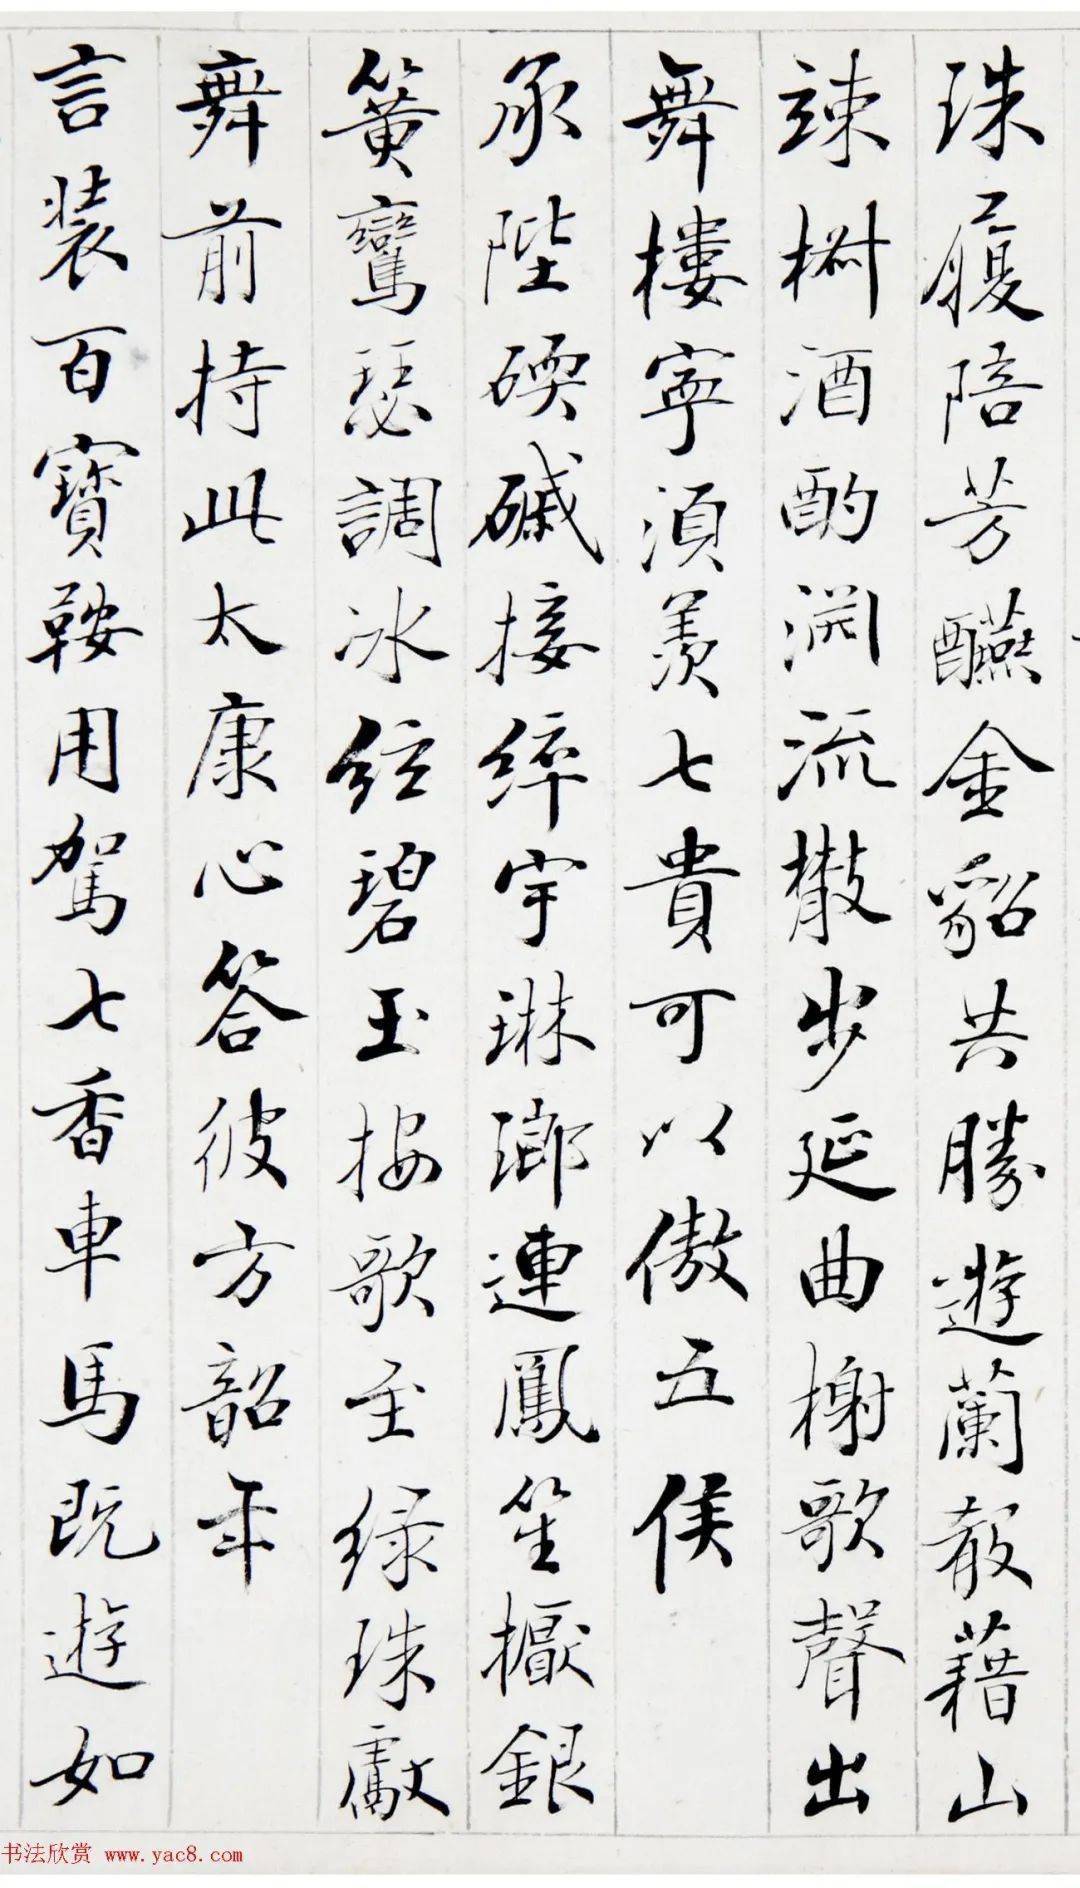 珠履陪芳醼金貂共勝遊蘭殽藉山
竦樹酒酌淵流散步延曲榭歌聲出
舞樓寧須羨七貴可以傲五侯
承陛碝磩接綷宇琳瑯連鳳笙擫銀
簧鸞瑟調冰絃碧玉按歌至绿珠獻
舞前持此太康心答彼方韶年
言裝百寶鞍用駕七香車馬既遊如
书法欣赏 www.yac8.com